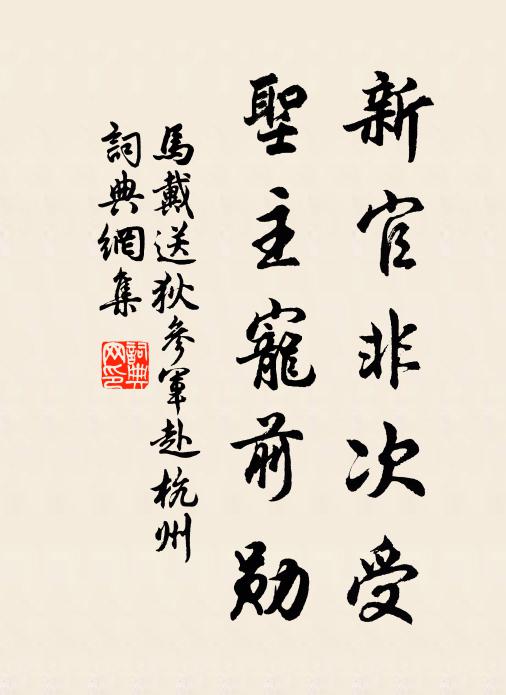 新官非次受
聖主寵前勛
馬戴送狄參軍赴杭州
詞典網集
詞典
网印